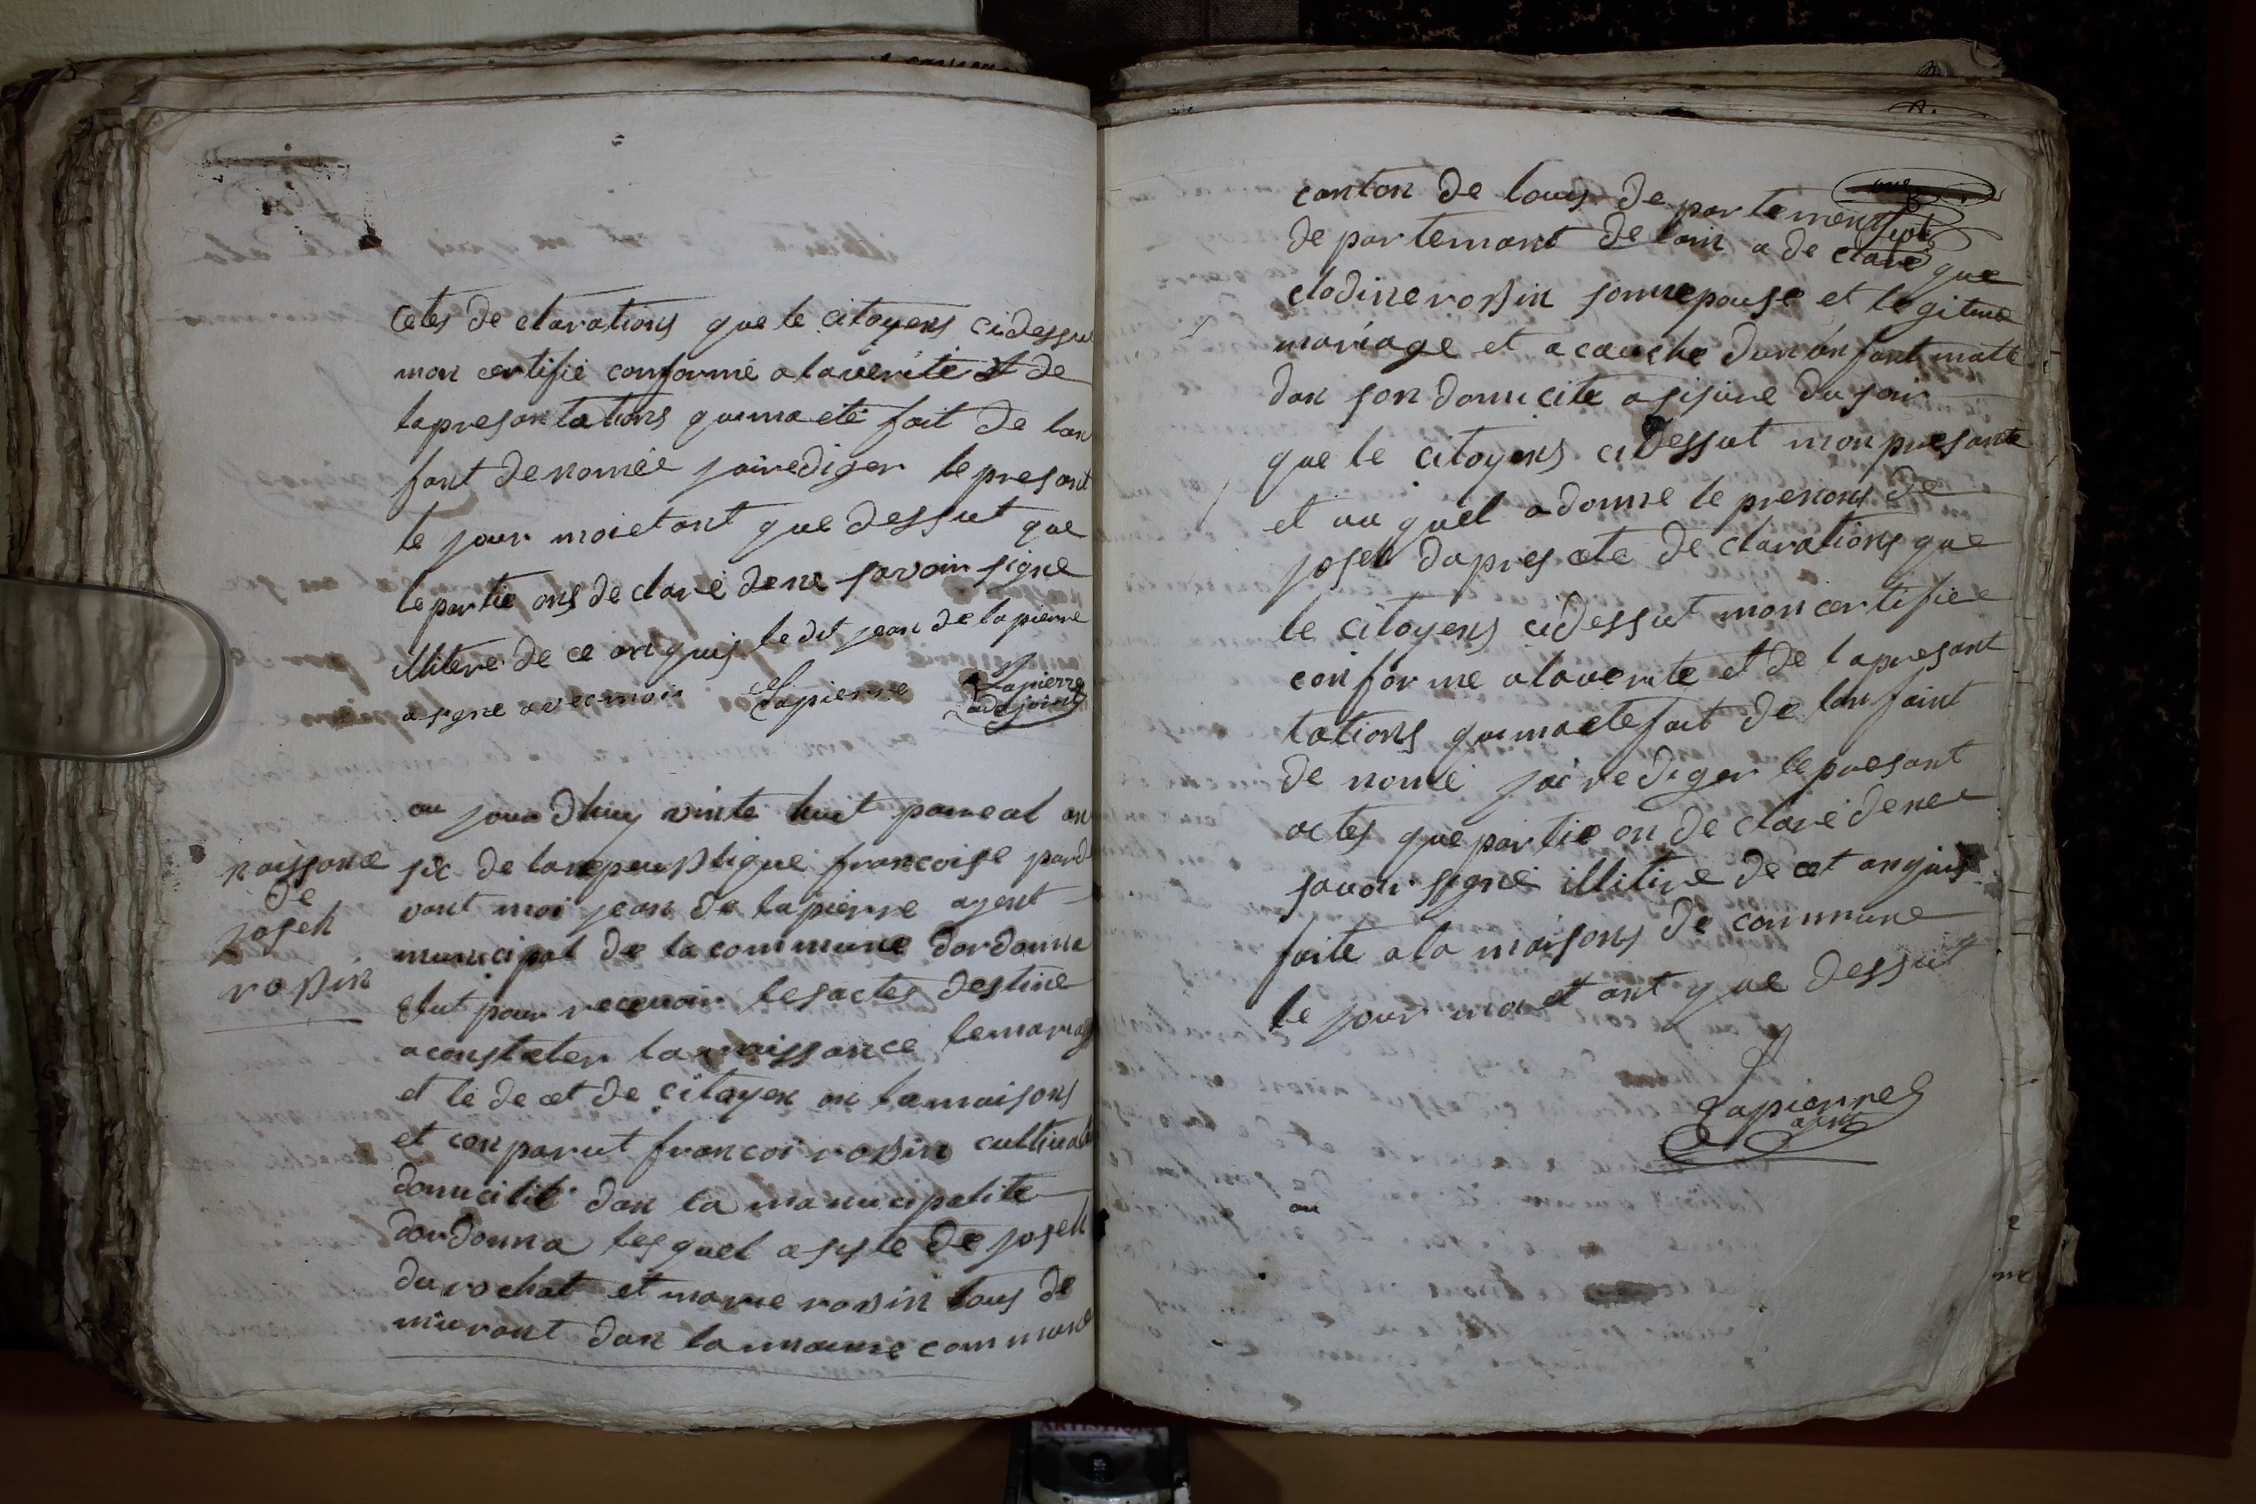 cetes de clarations que le citoyens cidessu
mon certifié conforme a la verite et de
la presantations qui ma eté fait de lan
fant denomée jai rediger le presant
le jour moi et ant que dessut que
le partie ons de claré de ne savoir signe
illitere de ce anquis le dit jean de lapierre
a signe avec moi Lapierre Lapierre
adjoint
naissance
de
joseh
robin
au jourdhuy vinte huit pareal an
six de la repeublique francoise pard
vant moi jean de lapierre agent
municipal de la commune dordonna
elut pour recevoir les actes destine
a constater la naissance le mariag
et le decet de citoyen an la maisons
et conparut francoi robin cultivat
domicilié dan la manicipalite
dordonna lesquel asiste de joseh
du rochat et marie robin tous de
muirant dan la maime commune
canton de louy departement
sept
departemant de lain a de claré que
clodine robin sonnepouse et legitime
mariage et acouche dun anfant malle
dan son domicile a sisure du soir
que le citoyens cidessut mon presante
et auquel adonne le prenons de
joseh dapres cete de clarations que
le citoyens cidessut mon certifiee
conforme a la verite et de la presant
tations qui ma ete fait de lan faint
de nomé jai rediger le presant
actes que partie on de claré de ne
savoir signé illitire de cet anquis
faite a la maisons de commune
le jour moi et ant que dessut
Lapierre
agent
au